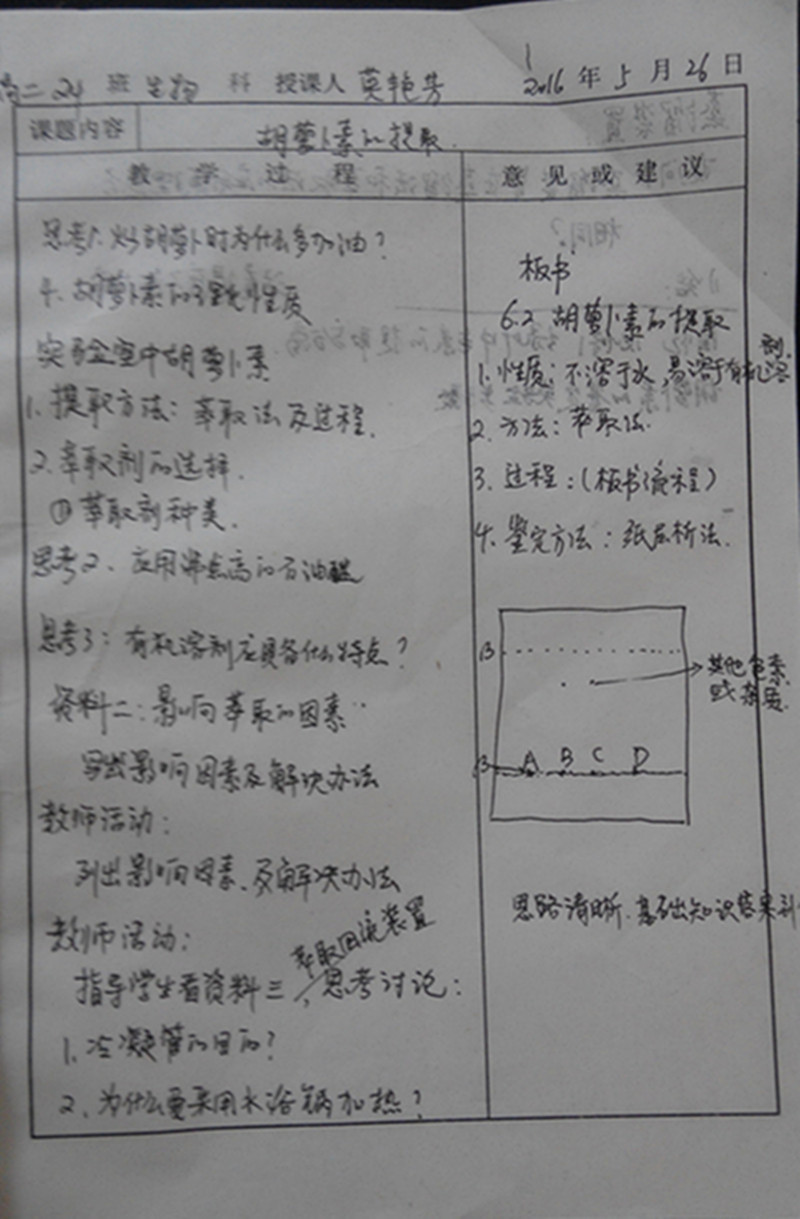 高二 24 班 生物 科 授课人 莫艳芳 2016 年 5 月 26 日
课题内容 胡萝卜素的提取
教学过程
意见或建议
思考1. 炒胡萝卜时为什么多加油?
4. 胡萝卜素的理化性质
实验室中胡萝卜素
1. 提取方法: 萃取法及过程.
2. 萃取剂的选择.
① 萃取剂种类.
思考2、应用沸点高的石油醚
思考3: 有机溶剂应具备什么特点?
资料二: 影响萃取的因素
写出影响因素及解决办法
教师活动:
列出影响因素、及解决办法
教师活动:
萃取回流装置
指导学生看资料三, 思考讨论:
1. 冷凝管的目的?
2、为什么要采用水浴锅加热?
板书
6.2 胡萝卜素的提取
1. 性质: 不溶于水, 易溶于有机溶剂.
2. 方法: 萃取法.
3. 过程: (板书流程)
4. 鉴定方法: 纸层析法.
B
其他色素
或杂质.
A B C D
思路清晰. 基础知识落实到